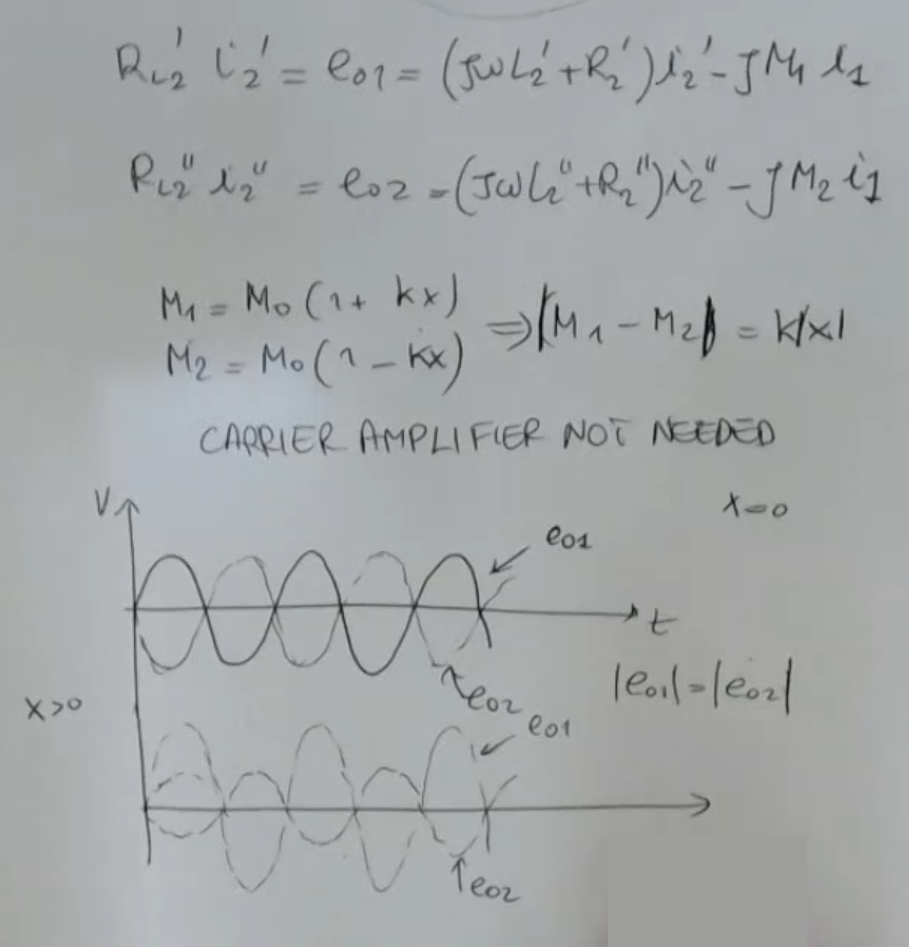 R_L2' i_2' = e_01 = (jωL_2' + R_2') i_2' - jM_1 i_1
R_L2'' i_2'' = e_02 = (jωL_2'' + R_2'') i_2'' - jM_2 i_1
M_1 = M_0 (1 + kx)
M_2 = M_0 (1 - kx)
⇒ |M_1 - M_2| = k|x|
CARRIER AMPLIFIER NOT NEEDED
V
x=0
e_01
t
e_02
|e_01| = |e_02|
x>0
e_01
e_02